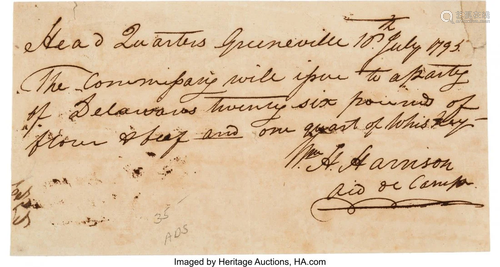 Head Quarters Greeneville 10th July 1795.
The Commissary will issue to a party
of Delawares twenty six pound of
flour & beef and one quart of Whiskey
Wm H. Harrison
aid de Camp
35
ADS
Imaged by Heritage Auctions, HA.com